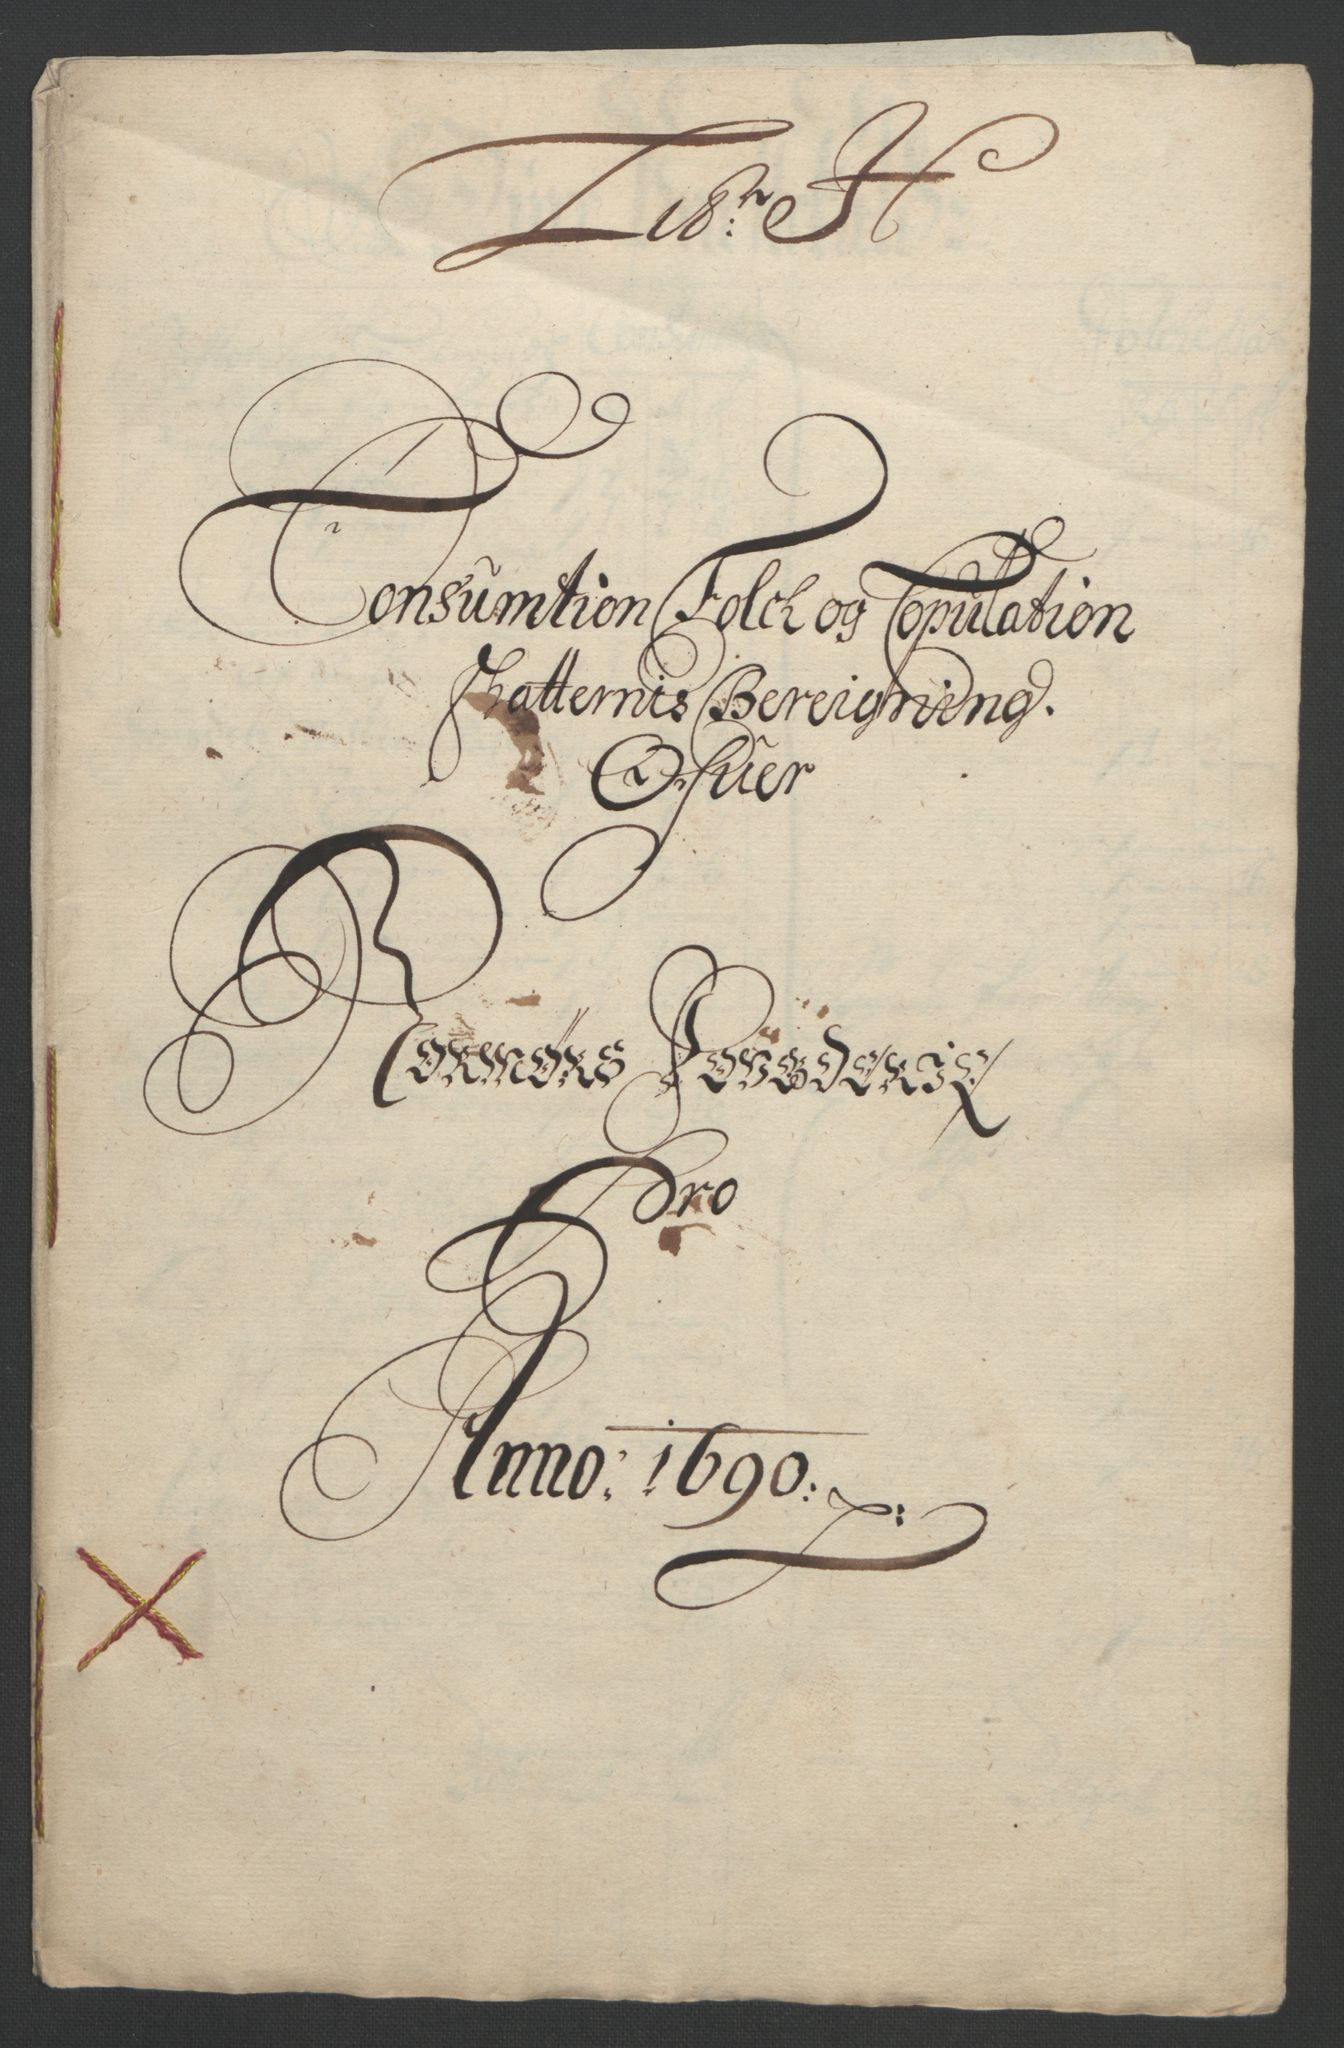 Litr: H
Consũmtion Folck og Copulation
Skatternis Bereigning.
Ofũer
Romsdals Fougderie
Pro
Anno: 1690: